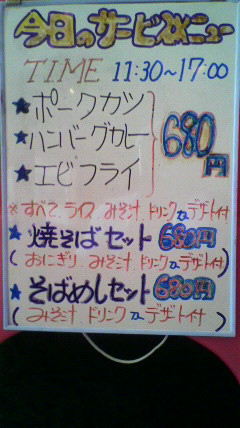 今日のサービスメニュー
TIME 11:30~17:00
★ポークカツ
★ハンバーグカレー
★エビフライ
680円
※すべて、ライス みそ汁 ドリンク or デザート付
★焼そばセット 680円
(おにぎり みそ汁 ドリンク or デザート付)
★そばめしセット 680円
(みそ汁 ドリンク or デザート付)